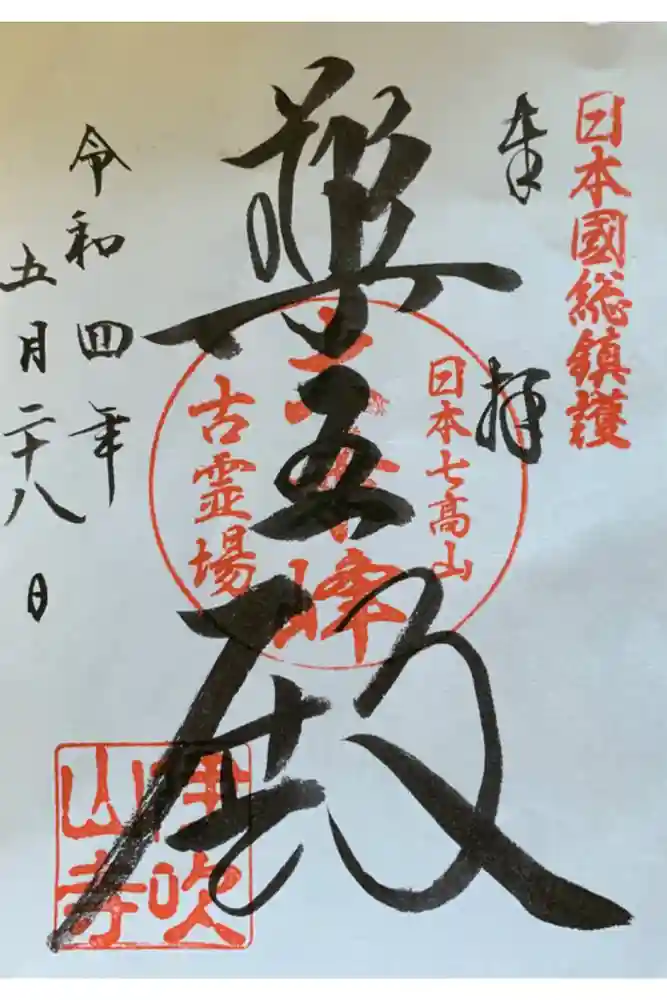 日本國総鎮護
奉拝
日本七高山
峰
古霊場
薬王殿
令和四年
五月二十八日
伊吹
山寺